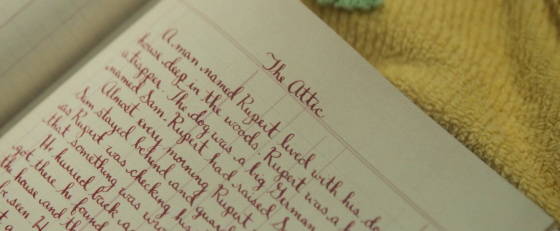 The Attic
A man named Rupert lived with his
house deep in the woods. Rupert was a
a trapper. The dog was a big German
named Sam. Rupert had raised
Almost every morning Rupert
Sam stayed behind and
as Rupert was checking his
that something was
He hurried back
got there he found
the house and
seen